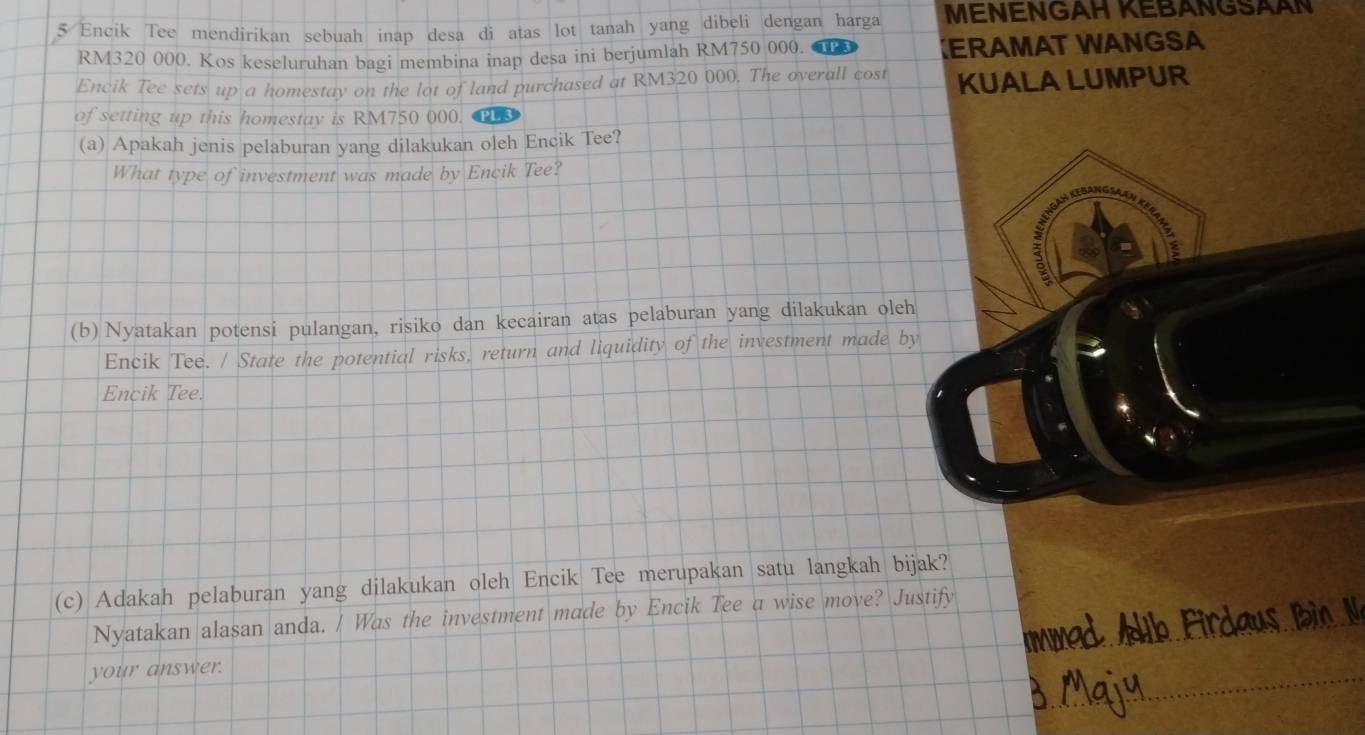 5 Encik Tee mendirikan sebuah inap desa di atas lot tanah yang dibeli dengan harga
RM320 000. Kos keseluruhan bagi membina inap desa ini berjumlah RM750 000. TP 3
Encik Tee sets up a homestay on the lot of land purchased at RM320 000. The overall cost
of setting up this homestay is RM750 000. PL 3
(a) Apakah jenis pelaburan yang dilakukan oleh Encik Tee?
What type of investment was made by Encik Tee?
(b) Nyatakan potensi pulangan, risiko dan kecairan atas pelaburan yang dilakukan oleh
Encik Tee. / State the potential risks, return and liquidity of the investment made by
Encik Tee.
(c) Adakah pelaburan yang dilakukan oleh Encik Tee merupakan satu langkah bijak?
Nyatakan alasan anda. / Was the investment made by Encik Tee a wise move? Justify
your answer.
MENENGAH KEBANGSAAN
KERAMAT WANGSA
KUALA LUMPUR
SEKOLAH MENENGAH KEBANGSAAN KERAMAT WA
mmad Adib Firdaus Bin N
3 Maju